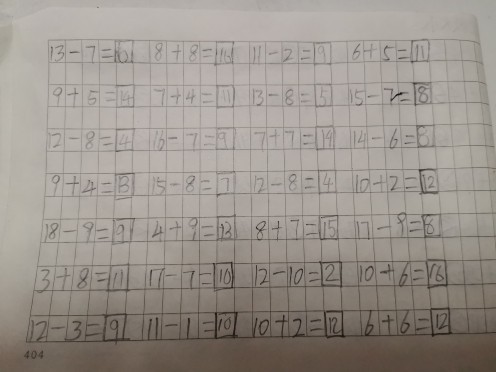 13-7=6 8+8=16 11-2=9 6+5=11
9+5=14 7+4=11 13-8=5 15-7=8
12-8=4 16-7=9 7+7=14 14-6=8
9+4=13 15-8=7 12-8=4 10+2=12
18-9=9 4+9=13 8+7=15 17-9=8
3+8=11 17-7=10 12-10=2 10+6=16
12-3=9 11-1=10 10+2=12 6+6=12
404